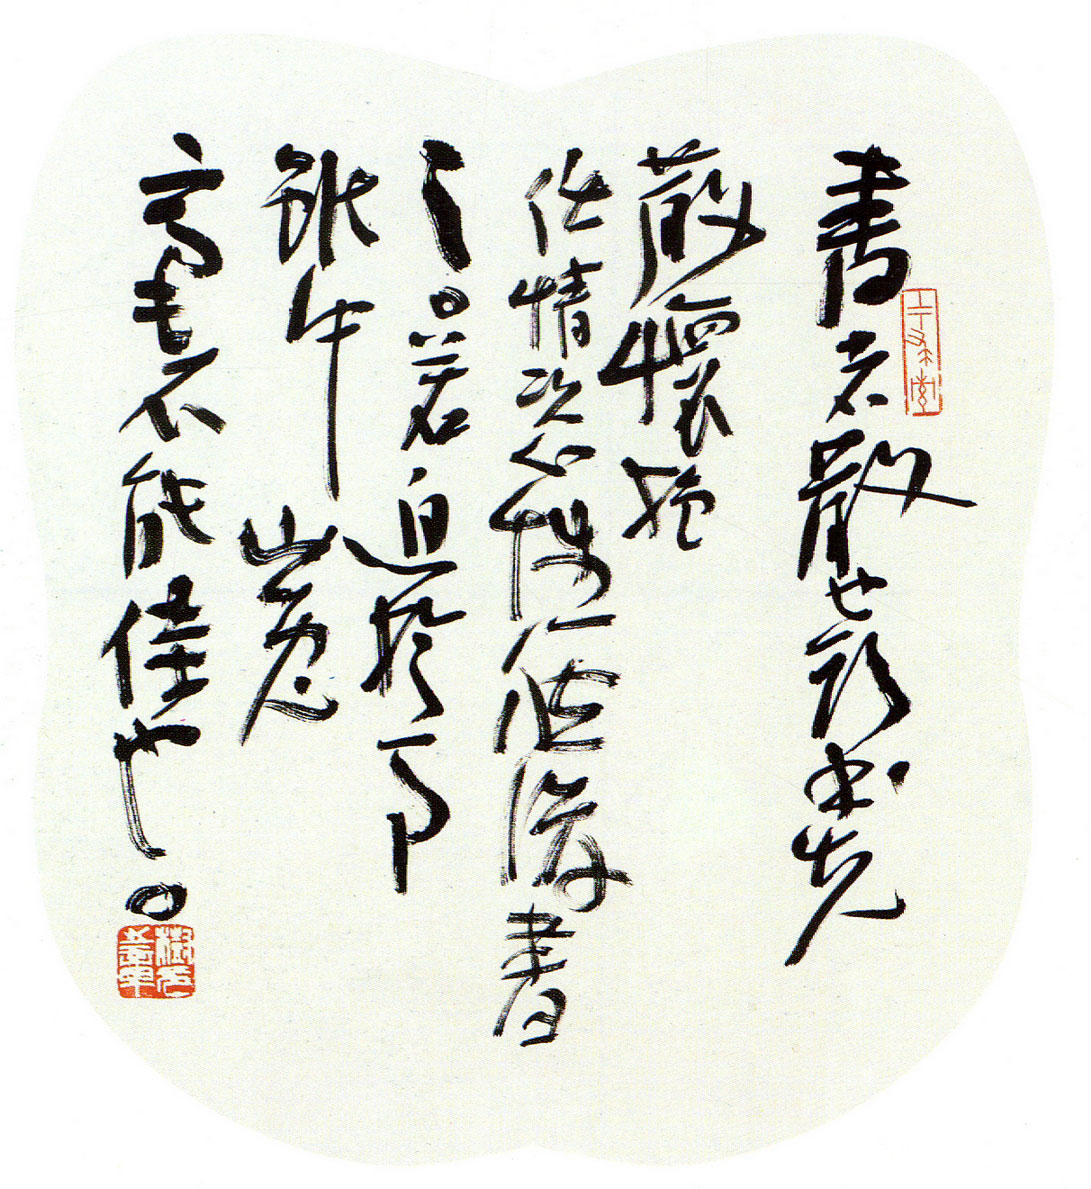 書者散也欲书先
散懷抱
任情恣性然後書
之。若迫於事
雖中山兔
毫不能佳也。